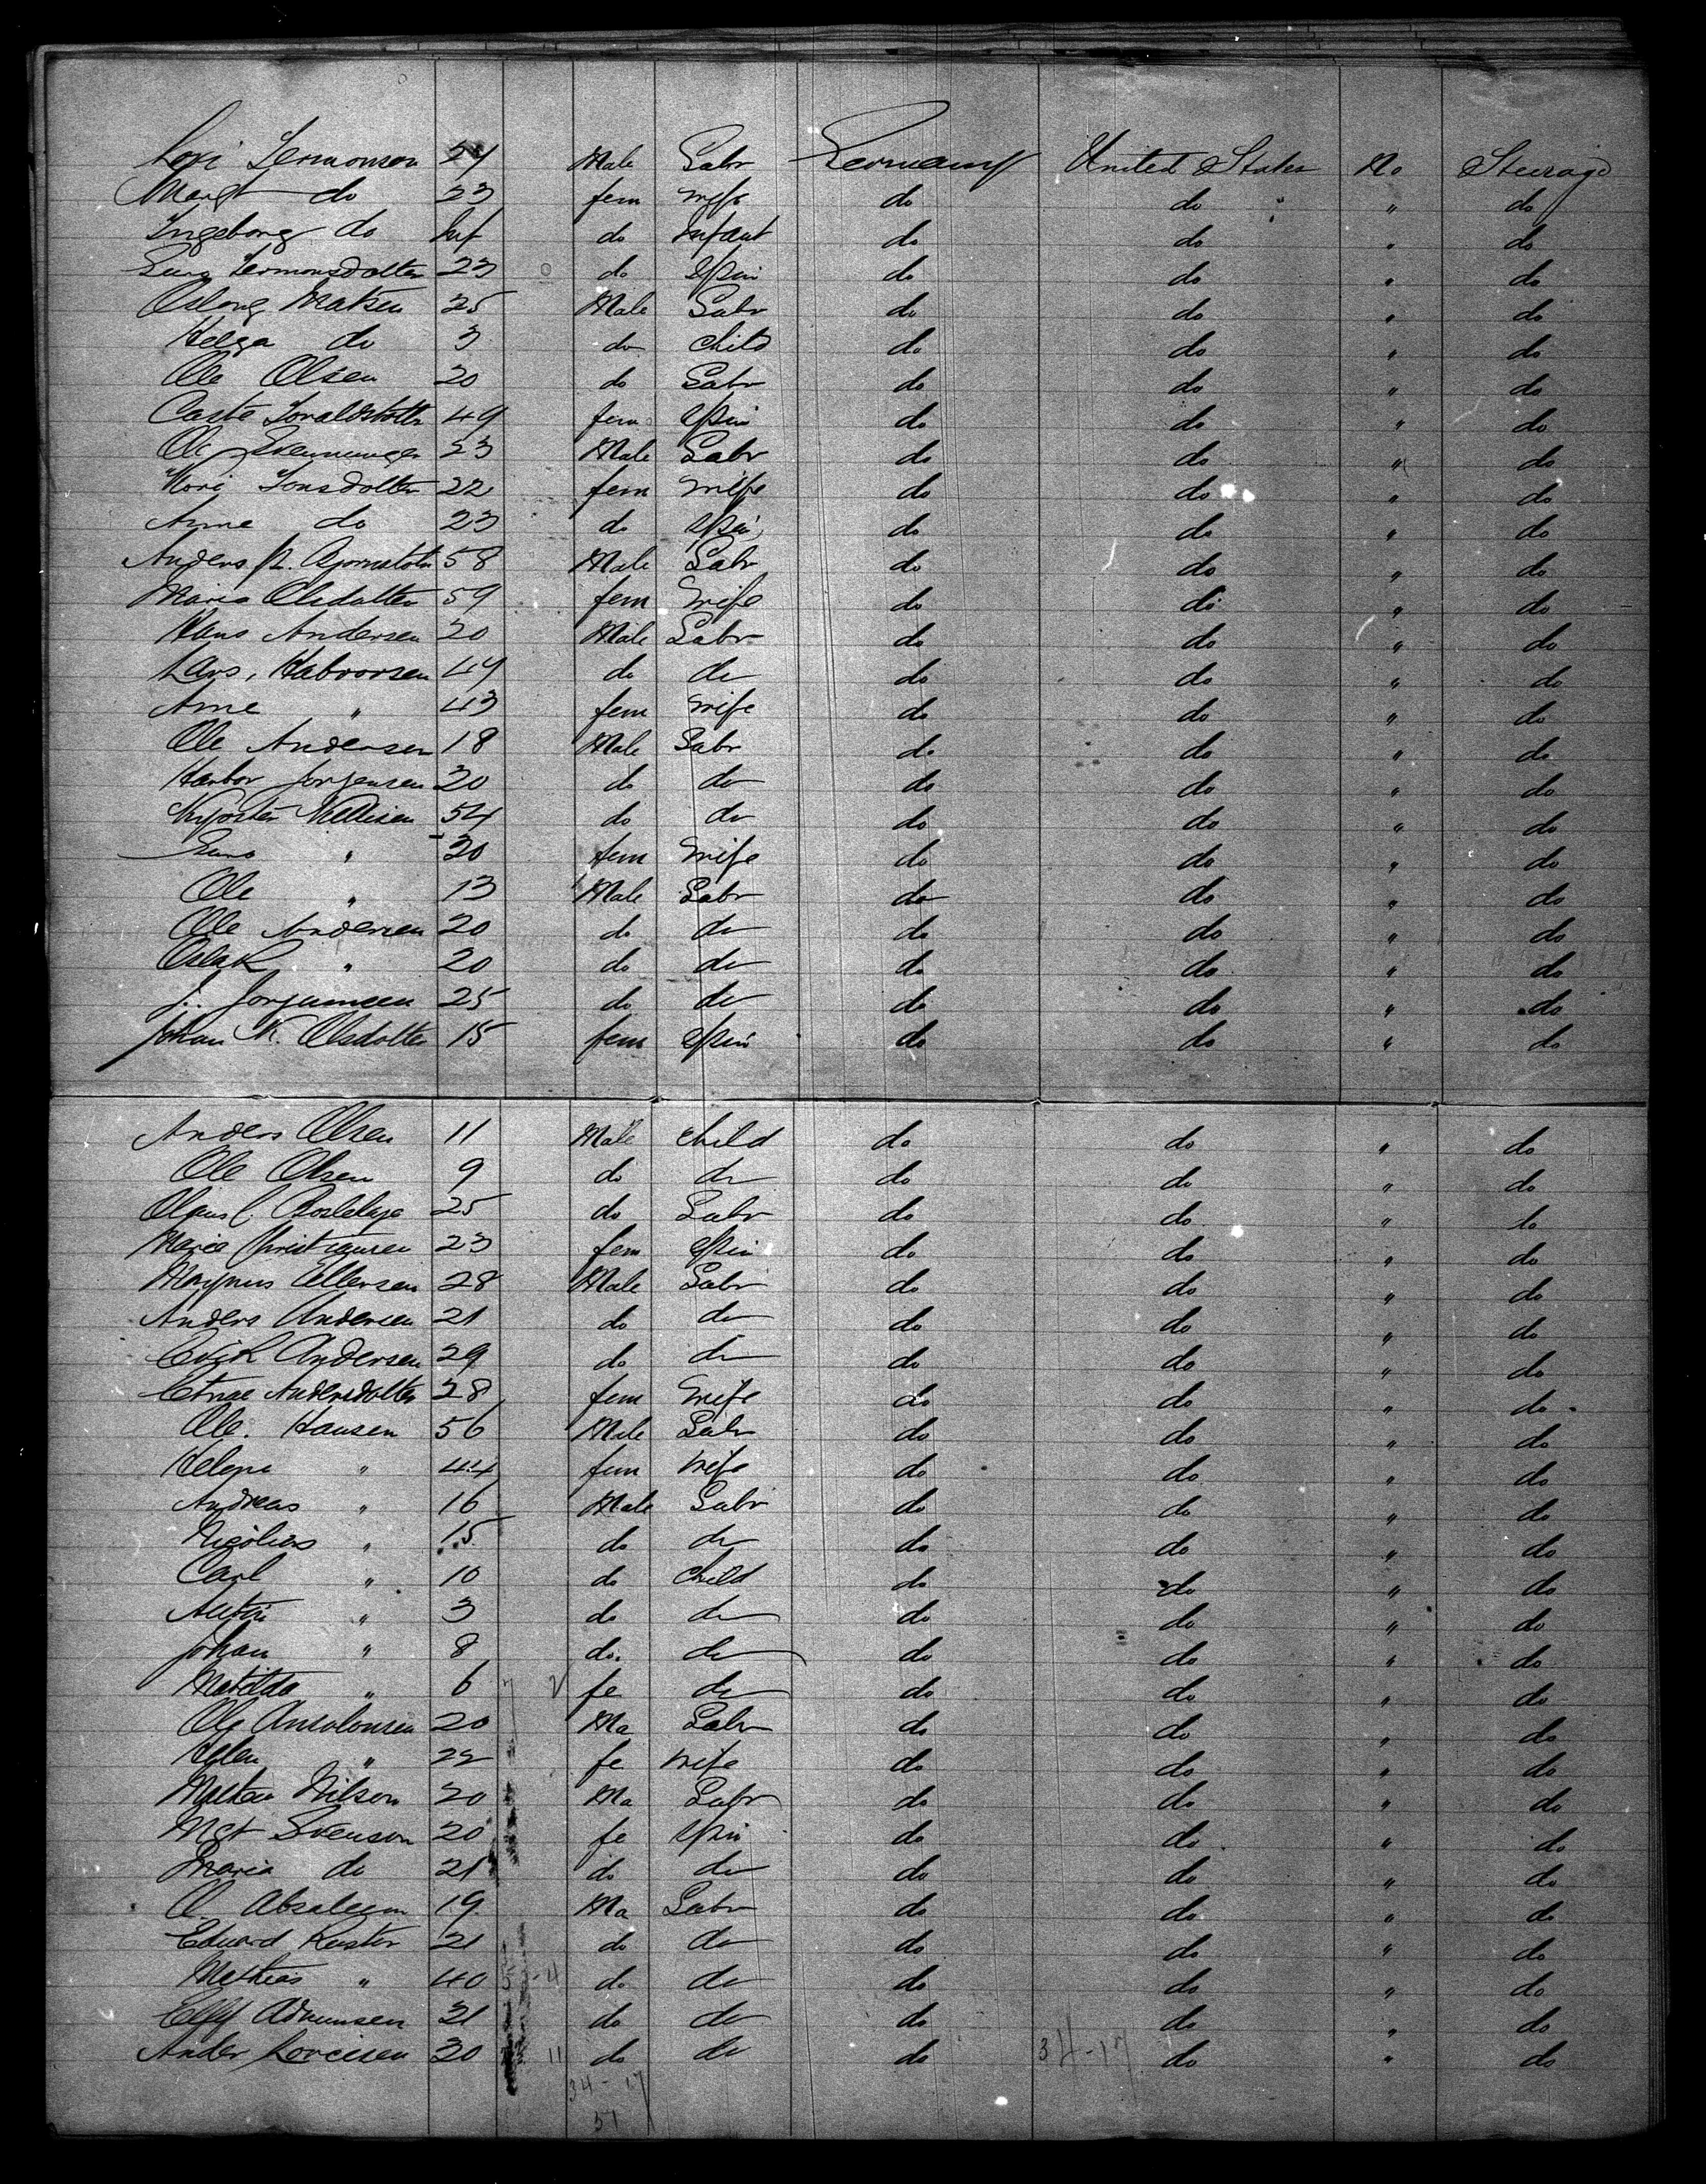 Lori Termonson 24 Male Labr Germany United States No Steerage
Margt do 23 fem wife do do " do
Ingeborg do Inf do Infant do do " do
Termonsdotter 23 do Spin do do " do
Osleng Matsen 25 Male Labr do do " do
Helga do 3 do child do do " do
Ole Olsen 20 do Labr do do " do
49 fem Spin do do " do
Ole 23 Male Labr do do " do
Kori Tonsdotter 22 fem wife do do " do
Arne do 23 do Spin do do " do
Anders 58 Male Labr do do " do
Maria Olsdatter 59 fem Wife do do " do
Hans Andersen 20 Male Labr do do " do
Lars, Habvorsen 44 do do do do " do
Arne " 43 fem wife do do " do
Ole Andersen 18 Male Labr do do " do
Harbor Jorgensen 20 do do do do " do
54 do do do do " do
" 20 fem wife do do " do
Ole " 13 Male Labr do do " do
Ole Andersen 20 do do do do " do
Oslak " 20 do do do do " do
J. 25 do do do do " do
Johan K. Olsdotter 15 fem Spin do do " do
Anders Olsen 11 Male child do do " do
Ole Olsen 9 do do do do " do
25 do Labr do do " do
Maria Christiansen 23 fem Spin do do " do
Magnus Ellersen 28 Male Labr do do " do
Anders Andersen 21 do do do do " do
Erik Andersen 29 do do do do " do
Andersdotter 28 fem Wife do do " do
Ole. Hansen 56 Male Labr do do " do
Helene " 44 fem wife do do " do
Andreas " 16 Male Labr do do " do
Nicolias " 15 do do do do " do
Carl " 10 do child do do " do
Anton " 3 do do do do " do
Johan " 8 do. do do do " do
Matilda " 6 fe do do do " do
Ole 20 Ma Labr do do " do
Helen " 22 fe wife do do " do
Nilson 20 Ma Labr do do " do
Mgt Svenson 20 fe Spin do do " do
Maria do 21 do do do do " do
O Absaleom 19 Ma Labr do do " do
Edward Kester 21 do do do do " do
Mathias " 40 do do do do " do
Adrumsen 21 do do do do " do
Ander 20 11 do do do 34-17 do " do
34-17
51